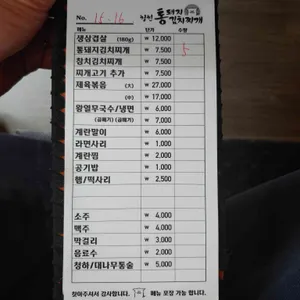 No. 15-16
통돼지 김치찌개
메뉴 단가 수량
생삼겹살 (180g) ₩ 12,000
통돼지김치찌개 ₩ 7,500 5
참치김치찌개 ₩ 7,500
찌개고기 추가 ₩ 7,500
제육볶음 (大) ₩ 27,000
(小) ₩ 17,000
왕열무국수/냉면 ₩ 6,000
(곱빼기) (곱빼기) ₩ 7,000
계란말이 ₩ 6,000
라면사리 ₩ 1,000
계란찜 ₩ 2,000
공기밥 ₩ 1,000
햄/떡사리 ₩ 2,500
소주 ₩ 4,000
맥주 ₩ 4,000
막걸리 ₩ 3,000
음료수 ₩ 2,000
청하/대나무통술 ₩ 5,000
찾아주셔서 감사합니다. 메뉴 포장 가능 합니다.